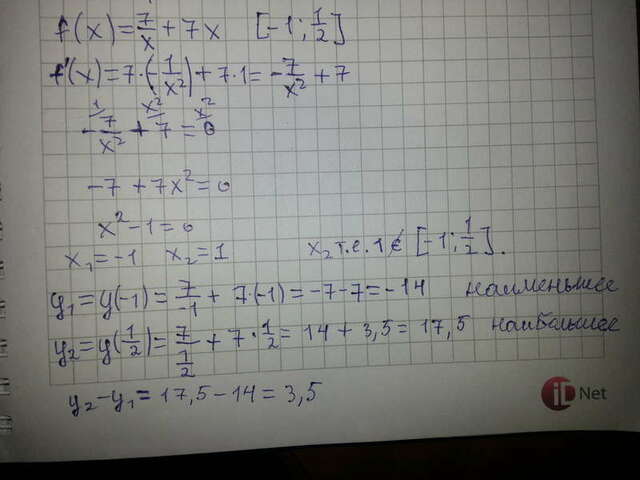 f(x) = 7/x + 7x [-1; 1/2]
f'(x) = 7·(-1/x²) + 7·1 = -7/x² + 7
-7/x² \1 + 7 \x² = 0 \x²
-7 + 7x² = 0
x² - 1 = 0
x₁ = -1 x₂ = 1 x₂ т.е. 1 ∉ [-1; 1/2].
y₁ = y(-1) = 7/-1 + 7·(-1) = -7-7 = -14 наименьшее
y₂ = y(1/2) = 7/(1/2) + 7·1/2 = 14 + 3,5 = 17,5 наибольшее
y₂ - y₁ = 17,5 - 14 = 3,5
Net